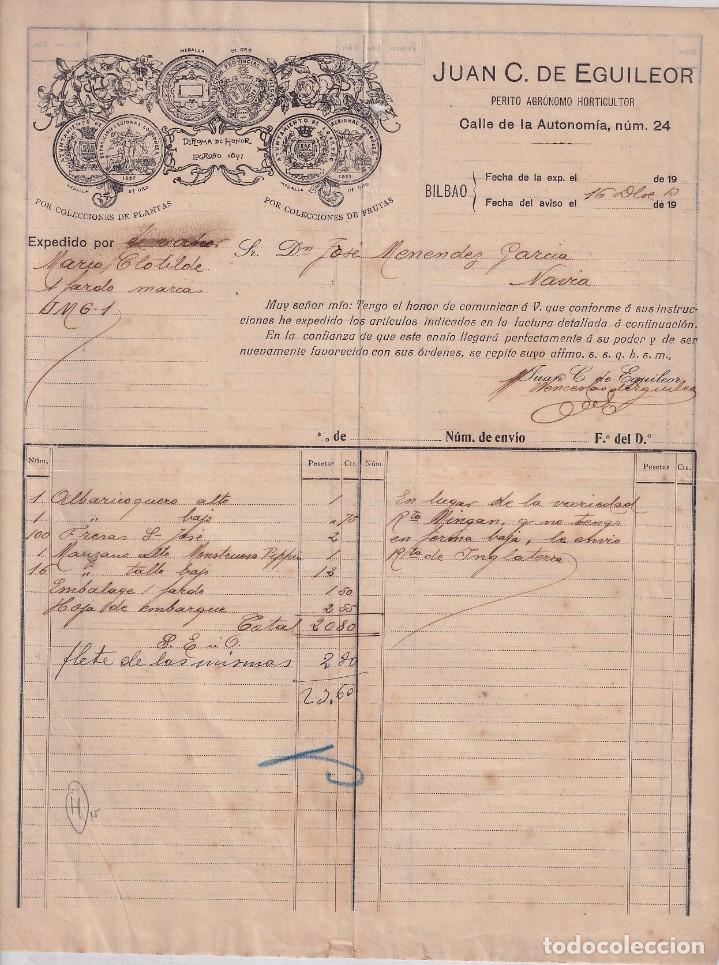 MEDALLA DE ORO
DIPLOMA DE HONOR
LOGROÑO 1897
1897
MEDALLA DE ORO
MEDALLA DE ORO
POR COLECCIONES DE PLANTAS
POR COLECCIONES DE FRUTAS
JUAN C. DE EGUILEOR
PERITO AGRÓNOMO HORTICULTOR
Calle de la Autonomía, núm. 24
BILBAO
Fecha de la exp. el de 19
Fecha del aviso el 16 Dbre de 19
Expedido por
Maria Clotilde
1 fardo marca
JMG-1
Sr. Dn José Menendez Garcia
Navia
Muy señor mio: Tengo el honor de comunicar á V. que conforme á sus instruc-
ciones he expedido los artículos indicados en la factura detallada á continuación.
En la confianza de que este envío llegará perfectamente á su poder y de ser
nuevamente favorecido con sus órdenes, se repite suyo affmo. s. s. q. b. s. m.,
Juan C. de Eguileor
Wenceslao
de Núm. de envío F.º del D.º
Núm. Pesetas Cts. Núm Pesetas Cts.
1 Albaricoquero alto 1
1 " bajo " 75
100 Fresas Sn José 2
1 Manzano alto Monstruoso Peppin 1
16 " tallo bajo 12
Embalage 1 fardo 1 50
Hoja de embarque 2 55
Total 20 80
S. E. u O.
flete de las mismas 2 80
23,60
En lugar de la variedad
Rta Wingan, q no tengo
en forma baja, le envio
Rta de Inglaterra
H
15
todocoleccion